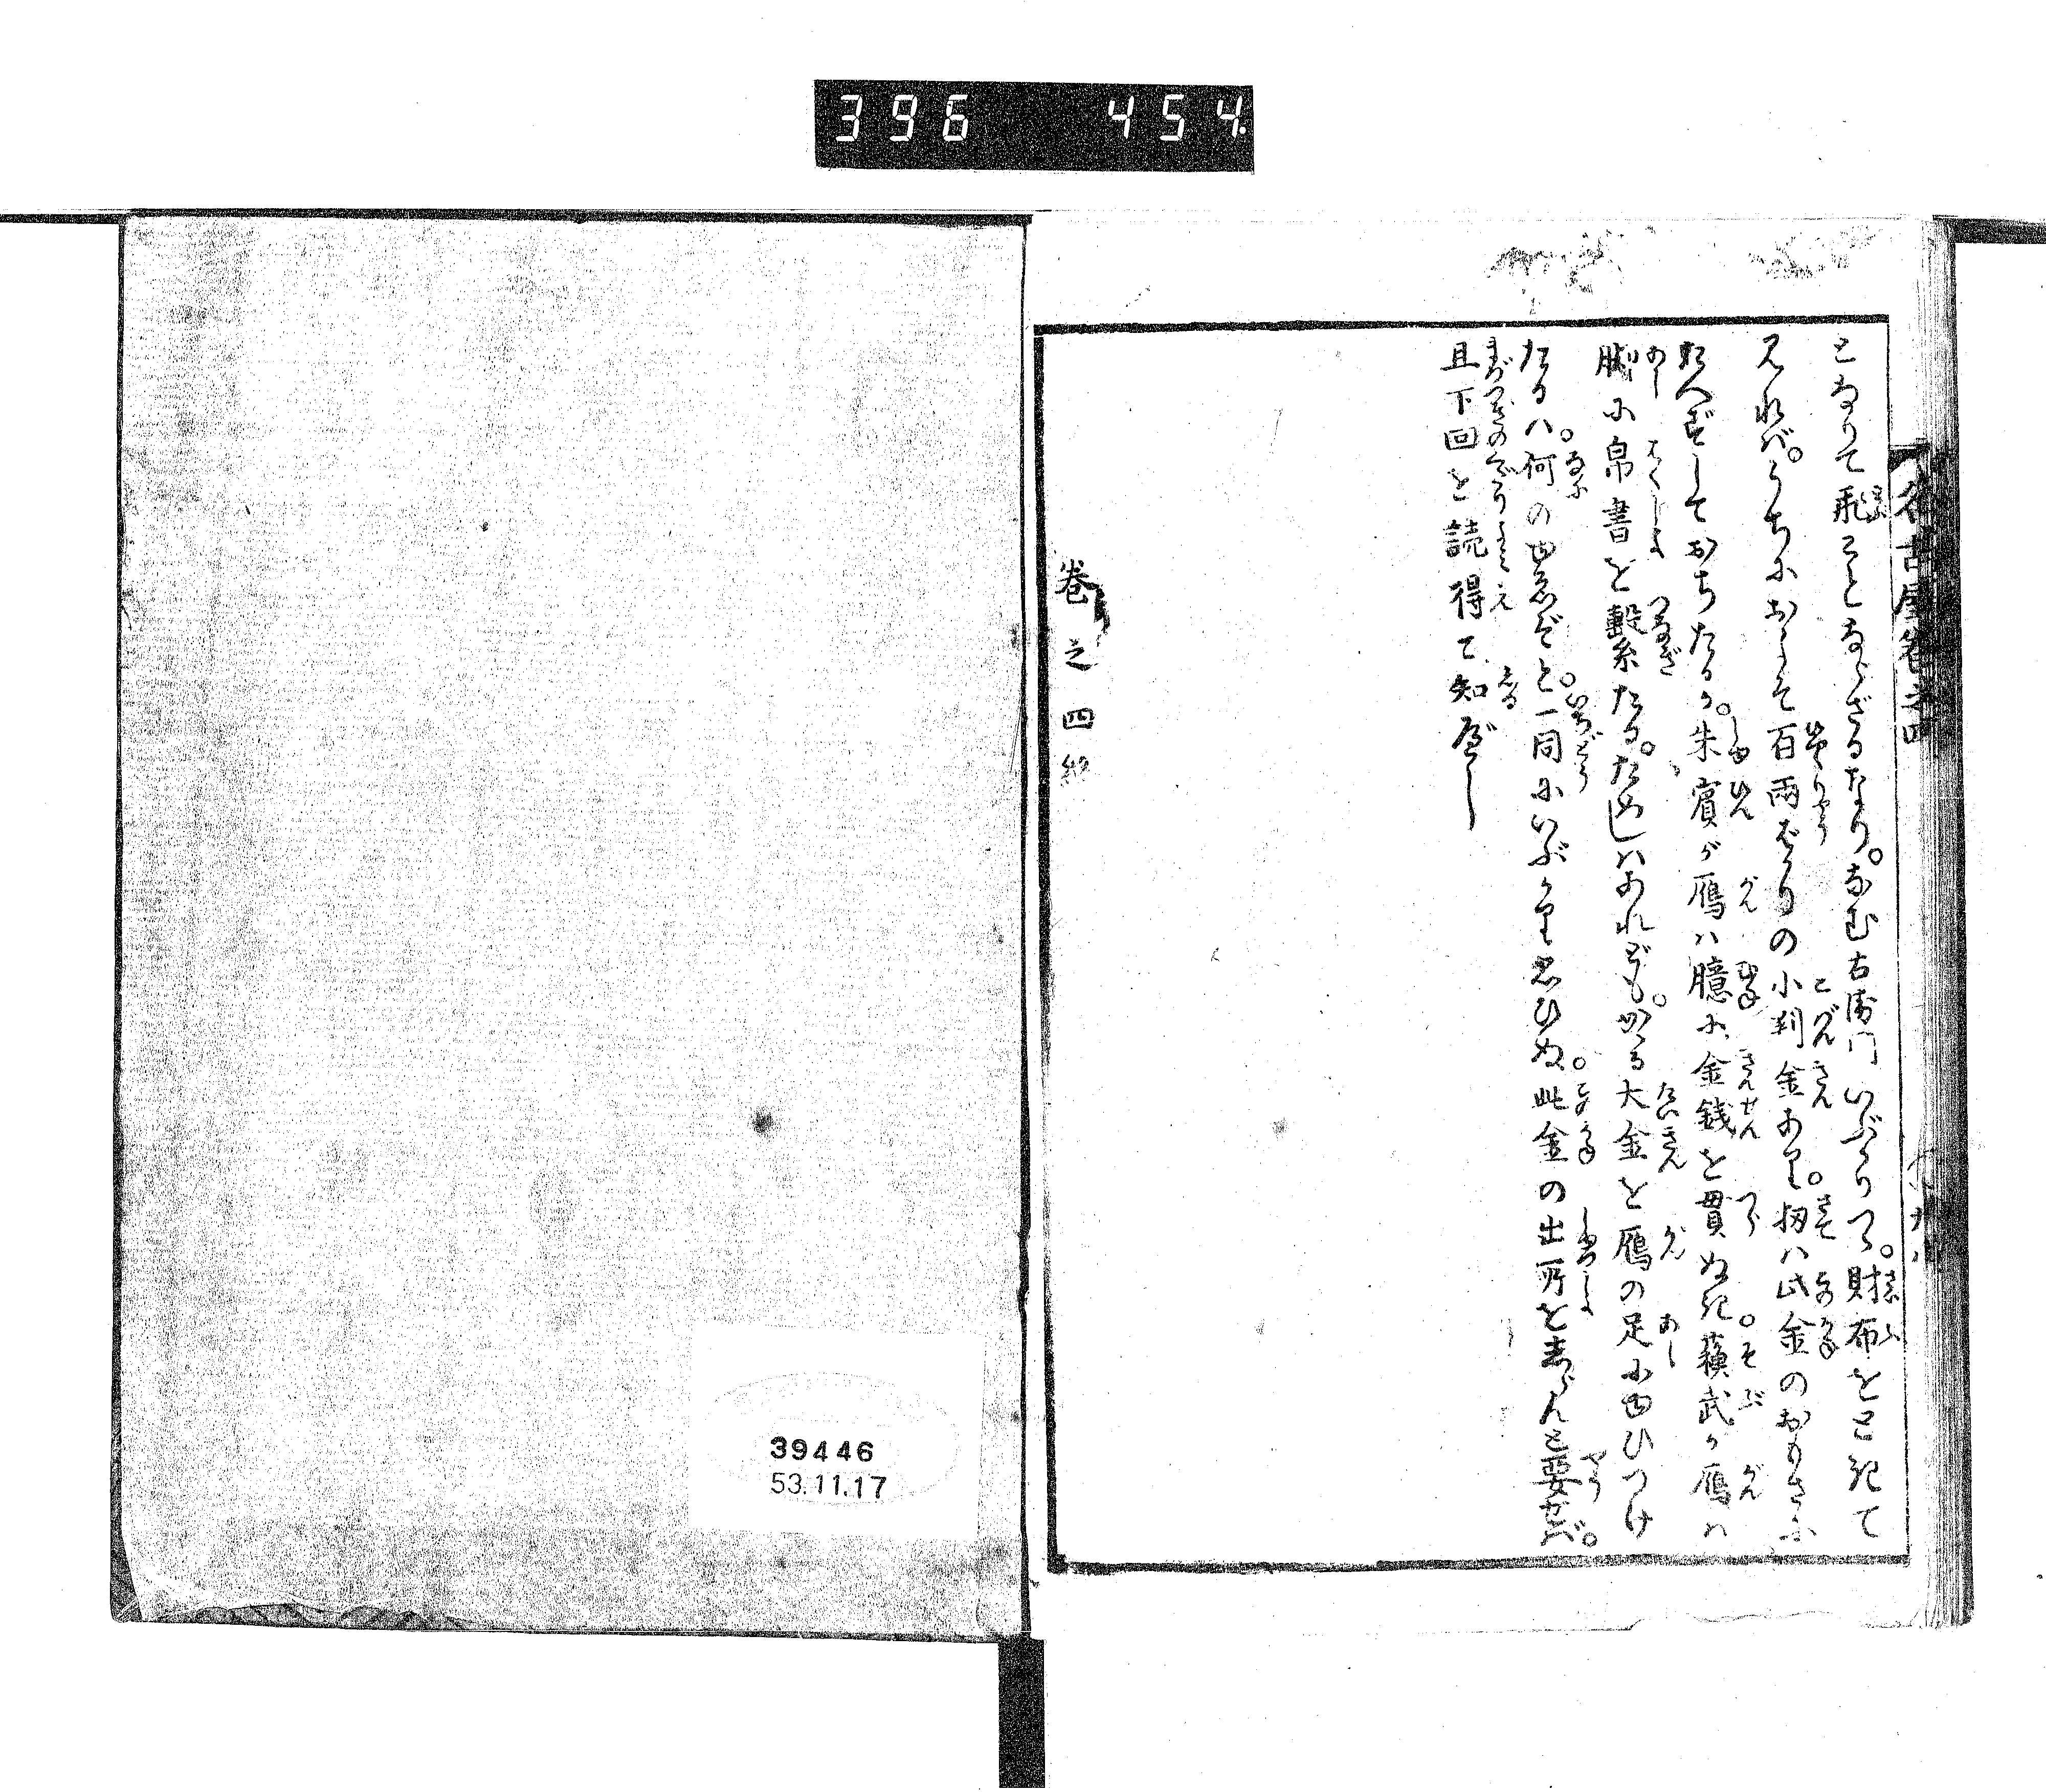 396 454
となりて飛ことならざるなり。なむ古衛門いぶかりつゝ。財布をときて
見れば。うちにおよそ百両ばかりの小判金あり。扨は此金のおもさに
たへずしておちたるか。朱賓が雁は臆に金銭を貫ぬき。蘇武が雁は
脚に帛書を繫たる。ためしはあれども。かゝる大金を雁の足にゆひつけ
たるは。何のゆゑぞと。一同にいぶかり思ひぬ。此金の出所をしらんと要せば。
且下回を読得て知べし
巻之四終
39446
53.11.17